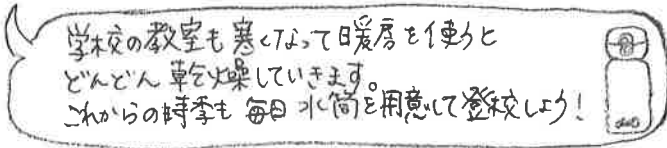 学校の教室も寒くなって暖房を使うと
どんどん乾燥していきます。
これからの時季も毎日水筒を用意して登校しよう!